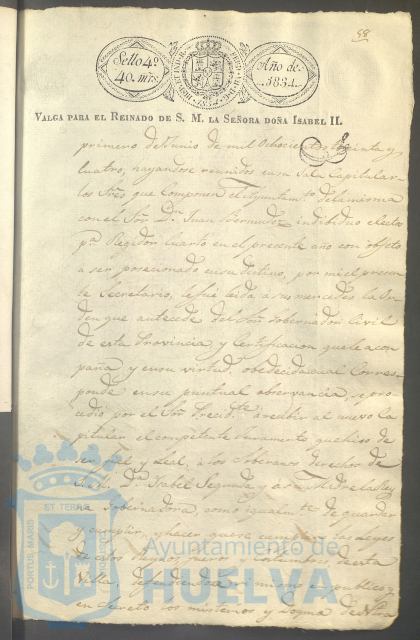 58
Sello 4º 40. mrs.
Año de 1834.
VALGA PARA EL REINADO DE S. M. LA SEÑORA DOÑA ISABEL II.
primero de Junio de mil Ochocientos treinta y
cuatro, hayandose reunidos en su Sala Capitular
los Sres que Componen el Ayuntamto. de la misma
con el Sor Dn. Juan Bermudez indibiduo electo
pa Regidor Cuarto en el presente año con objeto
a ser posecionado en su destino, por mi el presen
te Secretario, le fue leida a sus mercedes la Or
den que antecede del Sor Gobernador Civil
de esta Provincia, y Certificacion que le acom
paña y en su virtud, obedecida cual Corres
ponde en su puntual observancia, se pro
cedio por el Sor Precidte a recibir al nuevo Ca
pitular el competente Juramento que hiso de
ser fiel y Leal, a los Soberanos derechos de
S. M. Da. Isabel Segunda y a su Madre la Rey
na Gobernadora, como igualmte de guardar
y cumplir, y hacer que se cumplan las Leyes
fueros y costumbres, de esta
Villa, defender
en secreto los misterios y Dogma de
PORTUS MARIS ET TERRAE
Ayuntamiento de
HUELVA